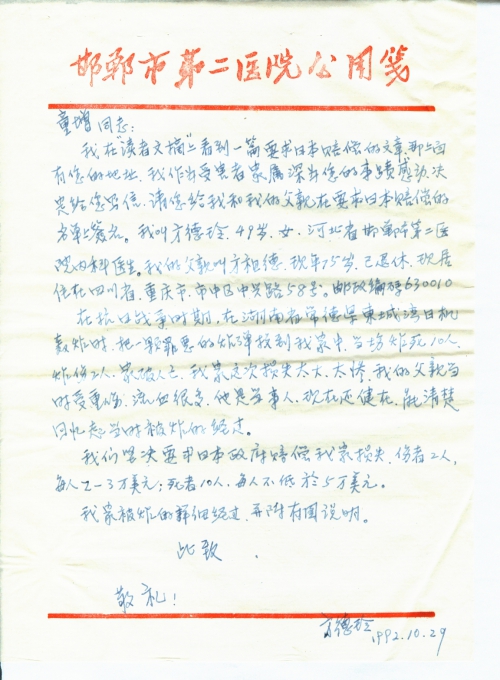 邯郸市第二医院公用笺
童增同志:
我在"读者文摘"上看到一篇要求日本赔偿的文章,那上面
有您的地址,我作为受害者家属深为您的事迹感动,决
定给您写信,请您给我和我的父亲在要求日本赔偿的
名单上签名。我叫方德玲,49岁,女,河北省邯郸市第二医
院内科医生。我的父亲叫方祖德,现年75岁,已退休,现居
住在四川省,重庆市,市中区中兴路58号。邮政编码630010
在抗日战争时期,在湖南省常德县东城湾日机
轰炸时,把一颗罪恶的炸弹投到我家中,当场炸死10人,
炸伤2人,家破人亡,我家这次损失太大,太惨,我的父亲当
时受重伤,流血很多,他是当事人,现在还健在,能清楚
回忆起当时被炸的经过。
我们坚决要求日本政府赔偿我家损失,伤者2人,
每人2-3万美元;死者10人,每人不低於5万美元。
我家被炸的详细经过,再附有图说明。
此致
敬礼!
方德玲
1992.10.29